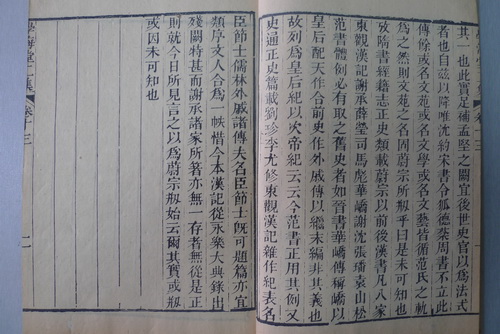 其一也此實足補孟堅之闕宜後世史官以爲法式
者也自茲以降唯沈約宋書令狐德棻周書不立此
傳餘或名文苑或名文學或名文藝皆循范氏之軌
爲之然則文苑之名固蔚宗所剏乎曰是未可知也
攷隋書經籍志正史類載蔚宗以前後漢書凡八家
東觀漢記謝承薛瑩司馬彪華嶠謝沈張璠袁山松
范書體例必有取之舊史者如晉書華嶠傳稱嶠以
皇后配天作合前史作外戚傳以繼末編非其義也
故列爲皇后紀以次帝紀云云今范書正用其例又
史通正史篇載劉珍李尤修東觀漢記雜作紀表名
臣節士儒林外戚諸傳夫名臣節士旣可題篇亦宜
類序文人合爲一帙惜今本漢記從永樂大典錄出
殘闕特甚而謝承諸家所著亦無一存者無從是正
則就今日所見言之以爲蔚宗剏始云爾其實或剏
或因未可知也
海堂二集
卷十三